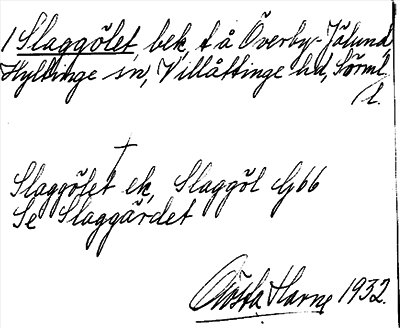 1 Slaggölet, bek, t å Överby-Jälund,
Hyltinge sn, Villåttinge hd, Sörml.
l.
Slaggölet ek, Slaggöl G66
Se Slaggärdet
Gösta Harne 1932.